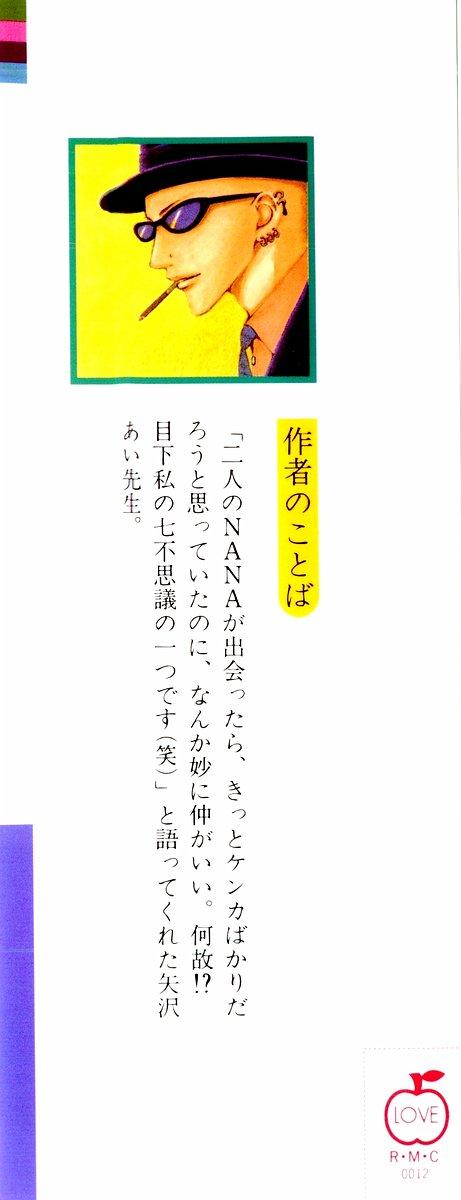 作者のことば
「二人のNANAが出会ったら、きっとケンカばかりだ
ろうと思っていたのに、なんか妙に仲がいい。何故!?
目下私の七不思議の一つです(笑)」と語ってくれた矢沢
あい先生。
LOVE
R・M・C
0012